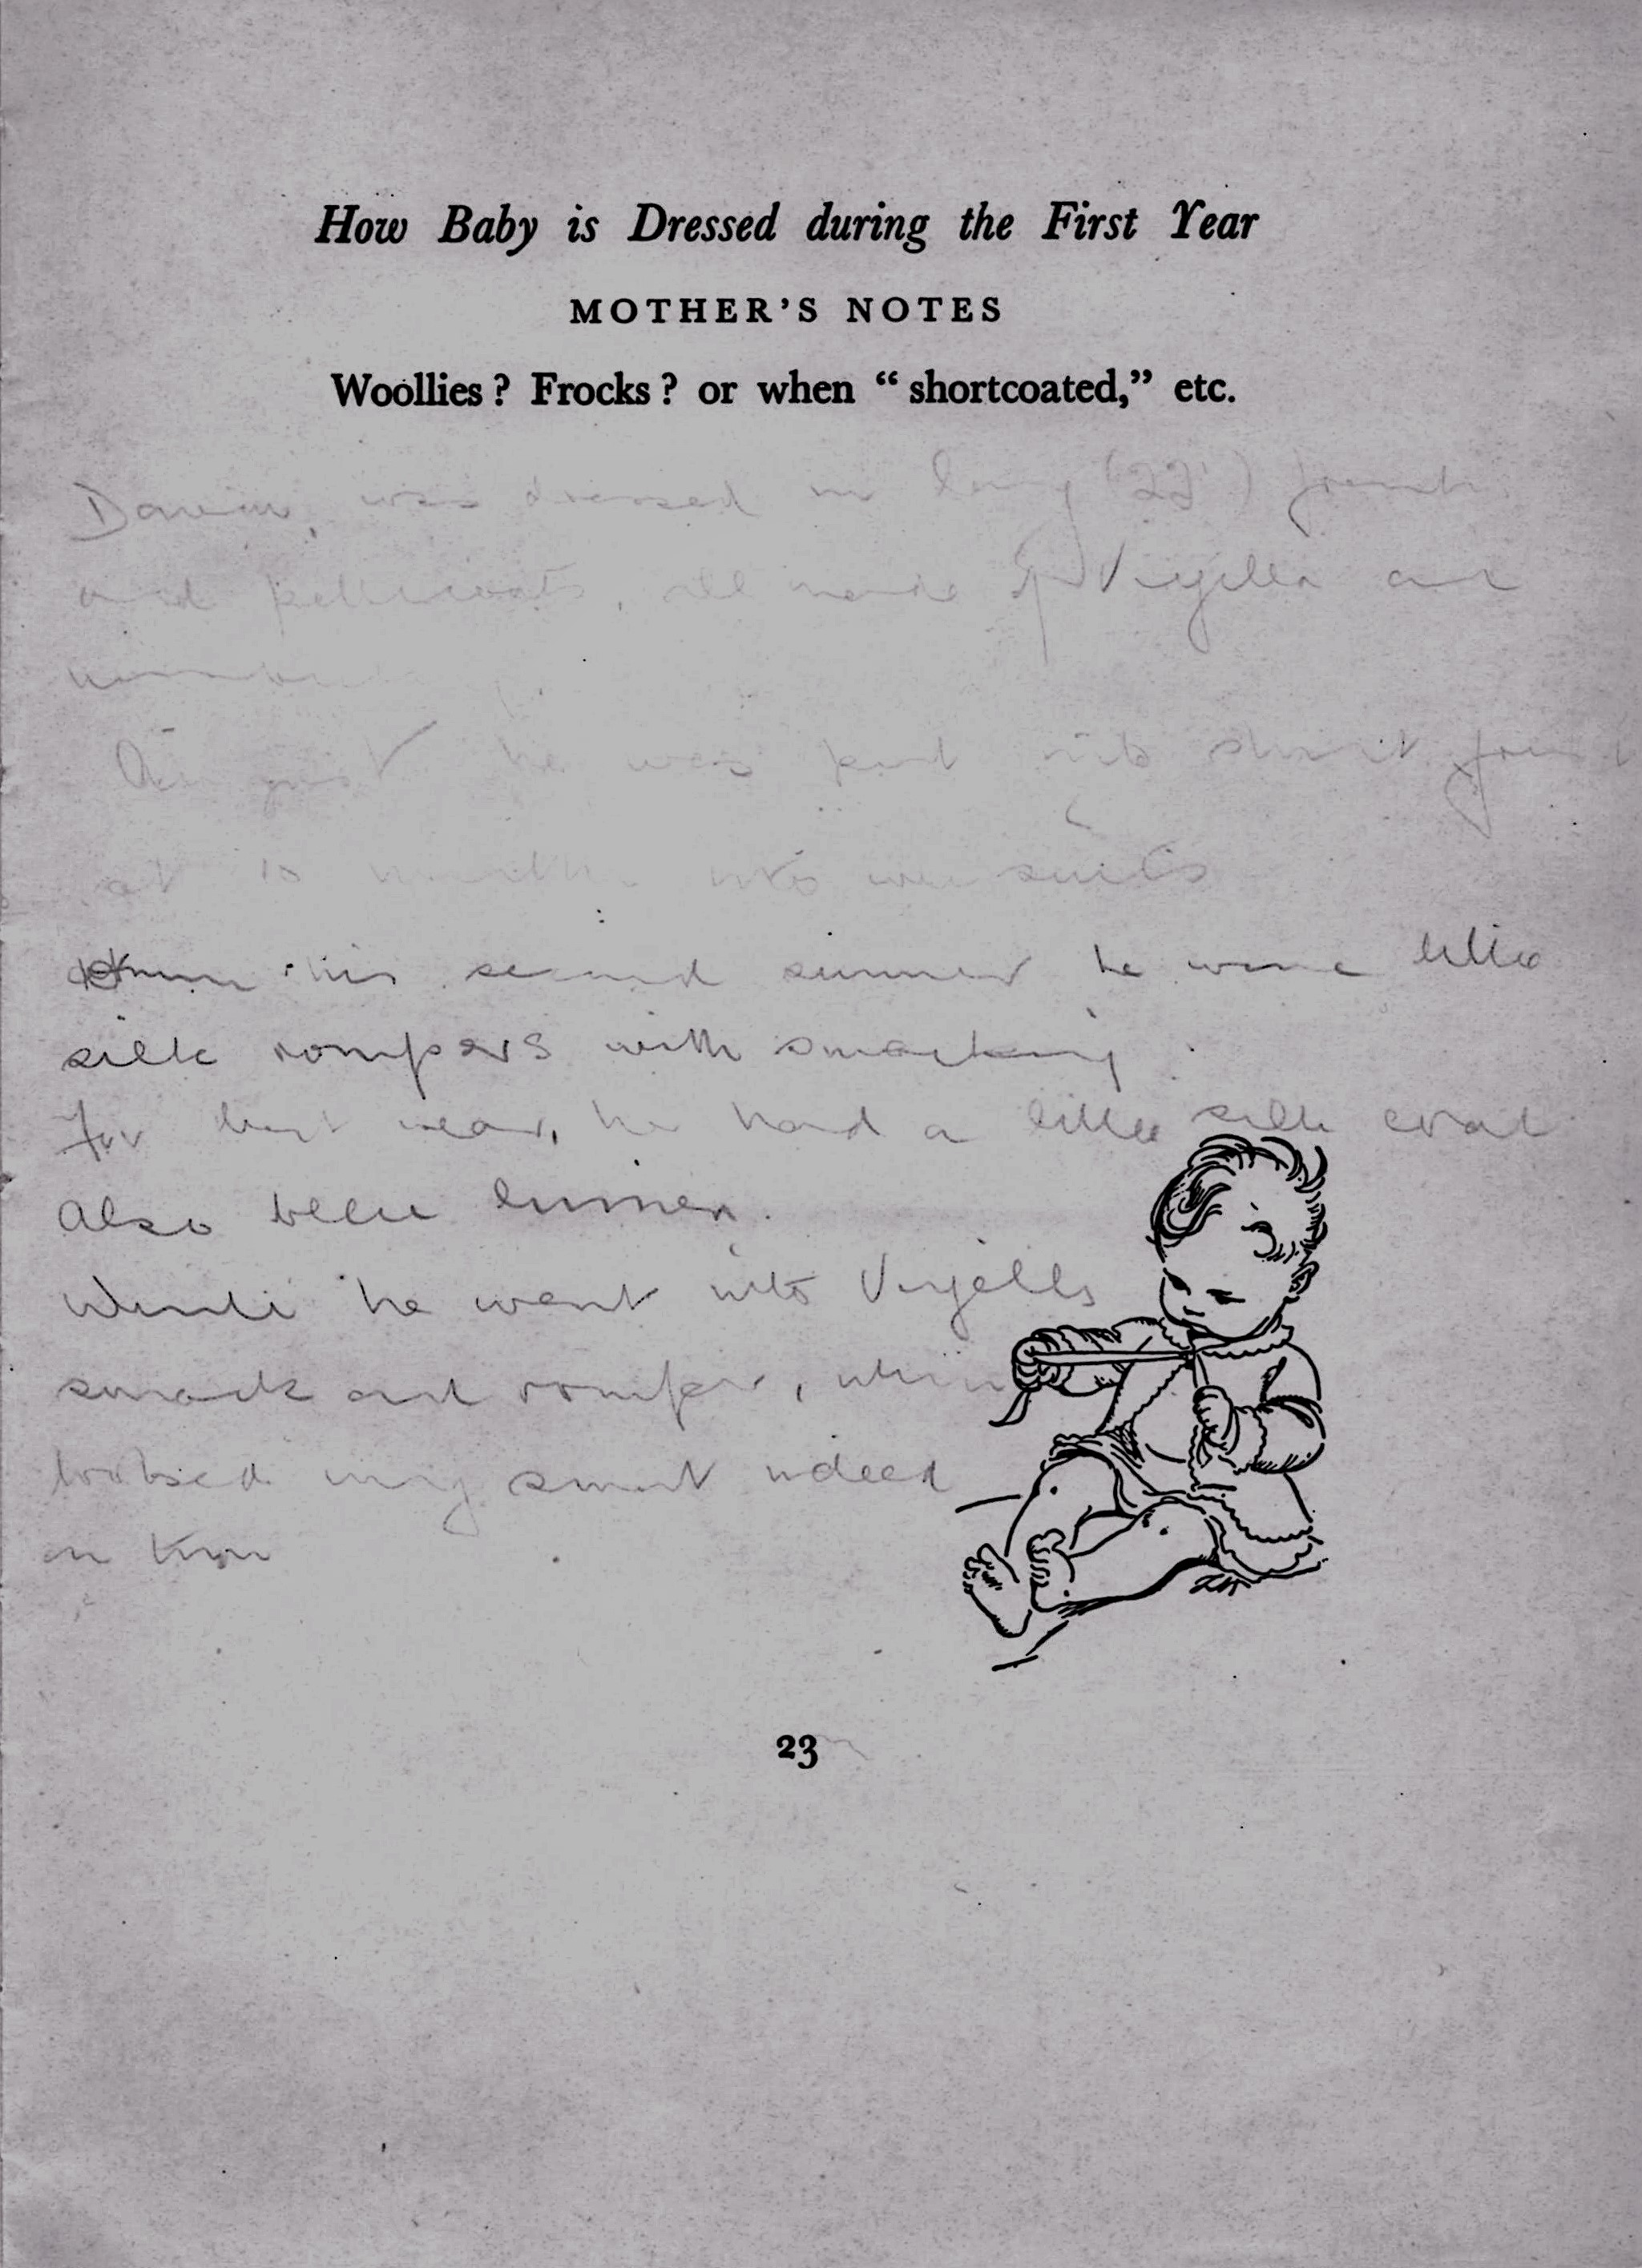 How Baby is Dressed during the First Year
MOTHER'S NOTES
Woollies? Frocks? or when "shortcoated," etc.
was dressed in long (22") frocks
and petticoats, all made of Viyella and
August he was put into short
at 10 months into wee suits
his second summer he wore little
silk rompers with smocking.
For best wear, he had a little silk coat
Also blue linnen.
he went into Viyella
smock and romper, which
looked very smart indeed
on him
23